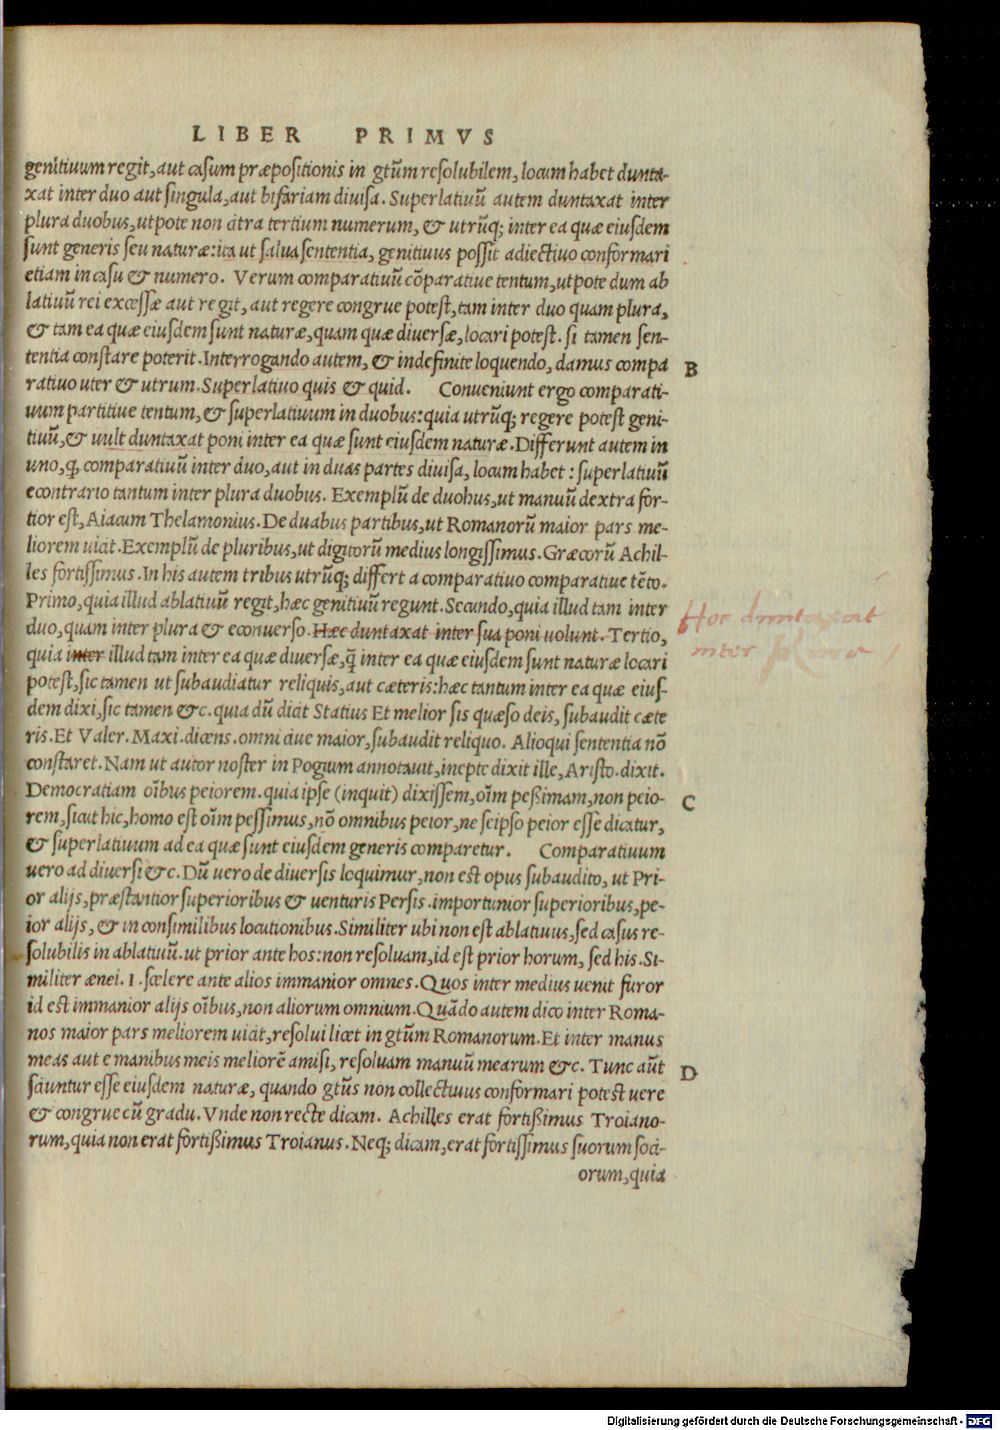 LIBER PRIMVS
genitiuum regit, aut casum præpositionis in gtũm resolubilem, locum habet dunta-
xat inter duo aut singula, aut bifariam diuisa. Superlatiuũ autem duntaxat inter
plura duobus, utpote non citra tertium numerum, & utrũq; inter ea quæ eiusdem
sunt generis seu naturæ: ita ut salua sententia, genitiuus possit adiectiuo conformari
etiam in casu & numero. Verum comparatiuũ cõparatiue tentum, utpote dum ab
latiuũ rei excessæ aut regit, aut regere congrue potest, tam inter duo quam plura,
& tam ea quæ eiusdem sunt naturæ, quam quæ diuersæ, locari potest. si tamen sen-
tentia constare poterit. Interrogando autem, & indefinite loquendo, damus compa
B
ratiuo uter & utrum. Superlatiuo quis & quid. Conueniunt ergo comparati-
uum partitiue tentum, & superlatiuum in duobus: quia utrũq; regere potest geni-
tiuũ, & uult duntaxat poni inter ea quæ sunt eiusdem naturæ. Differunt autem in
uno, q, comparatiuũ inter duo, aut in duas partes diuisa, locum habet: superlatiuũ
econtrario tantum inter plura duobus. Exemplũ de duobus, ut manuũ dextra for-
tior est, Aiacum Thelamonius. De duabus partibus, ut Romanorũ maior pars me-
liorem uicit. Exemplũ de pluribus, ut digitorũ medius longissimus. Græcorũ Achil-
les fortissimus. In his autem tribus utrũq; differt a comparatiuo comparatiue tẽto.
Primo, quia illud ablatiuũ regit, hæc genitiuũ regunt. Secundo, quia illud tam inter
duo, quam inter plura & econuerso. Hæc duntaxat inter sua poni uolunt. Tertio,
Hoc duntaxat
inter plura
quia inter illud tam inter ea quæ diuersæ, q̃ inter ea quæ eiusdem sunt naturæ locari
potest, sic tamen ut subaudiatur reliquis, aut cæteris: hæc tantum inter ea quæ eius-
dem dixi, sic tamen &c. quia dũ dicit Statius Et melior sis quæso deis, subaudit cæte
ris. Et Valer. Maxi. dicens. omni ciue maior, subaudit reliquo. Alioqui sententia nõ
constaret. Nam ut autor noster in Pogium annotauit, inepte dixit ille, Aristo. dixit.
Democratiam oĩbus peiorem. quia ipse (inquit) dixissem, oĩm peßimam, non peio-
C
rem, sicut hic, homo est oĩm pessimus, nõ omnibus peior, ne seipso peior esse dicatur,
& superlatiuum ad ea quæ sunt eiusdem generis comparetur. Comparatiuum
uero ad diuersi &c. Dũ uero de diuersis loquimur, non est opus subaudito, ut Pri-
or alijs, præstantior superioribus & uenturis Persis. importunior superioribus, pe-
ior alijs, & in consimilibus locutionibus. Similiter ubi non est ablatiuus, sed casus re-
solubilis in ablatiuũ. ut prior ante hos: non resoluam, id est prior horum, sed his. Si-
militer ænei. 1. scelere ante alios immanior omnes. Quos inter medius uenit furor
id est immanior alijs oĩbus, non aliorum omnium. Quãdo autem dico inter Roma-
nos maior pars meliorem uicit, resolui licet in gtũm Romanorum. Et inter manus
meas aut e manibus meis meliorẽ amisi, resoluam manuũ mearum &c. Tunc aũt
D
sciuntur esse eiusdem naturæ, quando gtũs non collectiuus conformari potest uere
& congrue cũ gradu. Vnde non recte dicam. Achilles erat fortißimus Troiano-
rum, quia non erat fortißimus Troianus. Neq; dicam, erat fortissimus suorum soci-
orum, quia
Digitalisierung gefördert durch die Deutsche Forschungsgemeinschaft - DFG